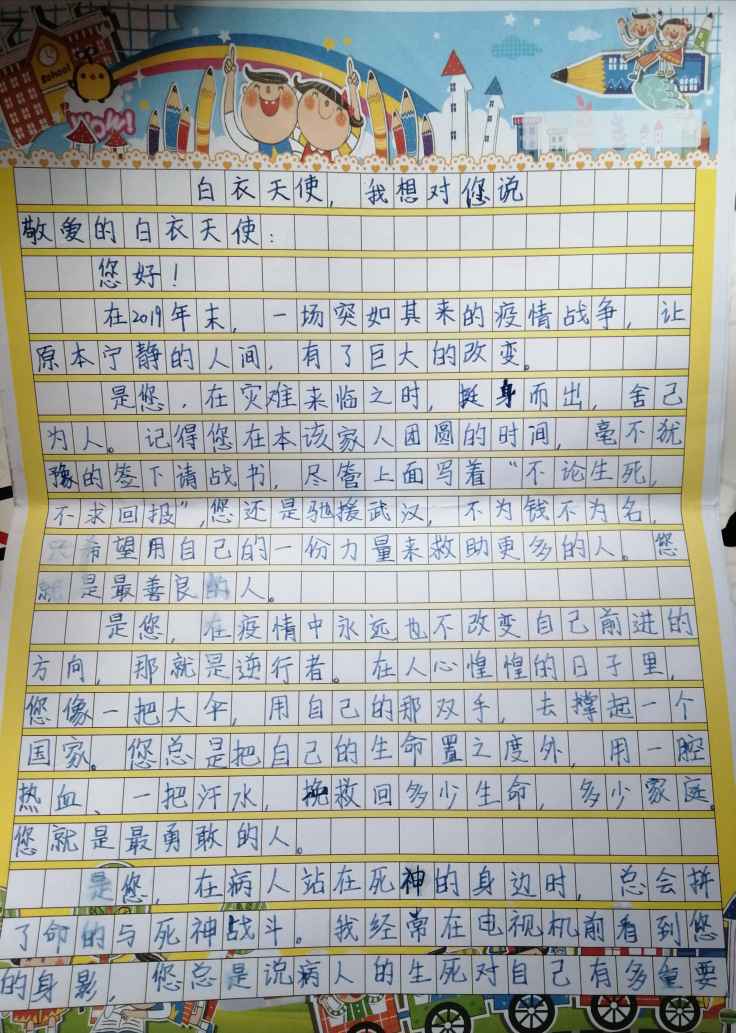 School
WOW!
白衣天使，我想对您说
敬爱的白衣天使：
您好！
在2019年末，一场突如其来的疫情战争，让
原本宁静的人间，有了巨大的改变。
是您，在灾难来临之时，挺身而出，舍己
为人。记得您在本该家人团圆的时间，毫不犹
豫的签下请战书，尽管上面写着“不论生死，
不求回报”，您还是驰援武汉，不为钱不为名，
只希望用自己的一份力量来救助更多的人。您
就是最善良的人。
是您，在疫情中永远也不改变自己前进的
方向，那就是逆行者。在人心惶惶的日子里，
您像一把大伞，用自己的那双手，去撑起一个
国家。您总是把自己的生命置之度外，用一腔
热血、一把汗水，挽救回多少生命，多少家庭。
您就是最勇敢的人。
是您，在病人站在死神的身边时，总会拼
了命的与死神战斗。我经常在电视机前看到您
的身影，您总是说病人的生死对自己有多重要